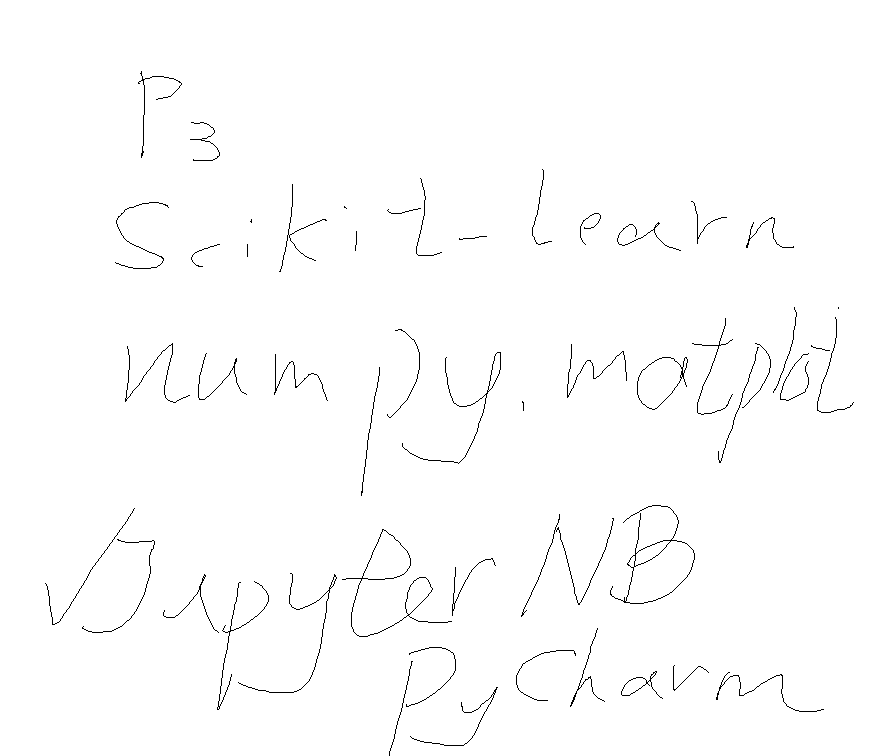 P3
Scikit-learn
numpy, matplot
√Jupyter NB
PyCharm